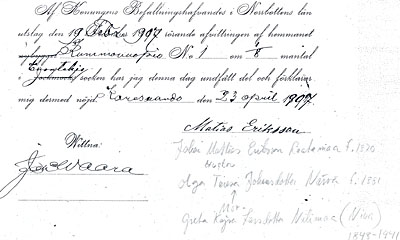 Af Konungens Befallningshafvandes i Norrbottens län
utslag den 19 Febr. 1907 rörande afvittringen af hemmanet
Kummavuopio No 1 om mantal
i Enontekis
Jockmocks socken har jag denna dag undfått del och förklarar
mig dermed nöjd. Karesuando den 23 april 1907
Matias Eriksson
Wittna:
Johan Mattias Eriksson f. 1870
Olga Johansdotter f. 1881
Mor
Greta Kajsa Larsdotter Niemaa (Niva)
1843-1941